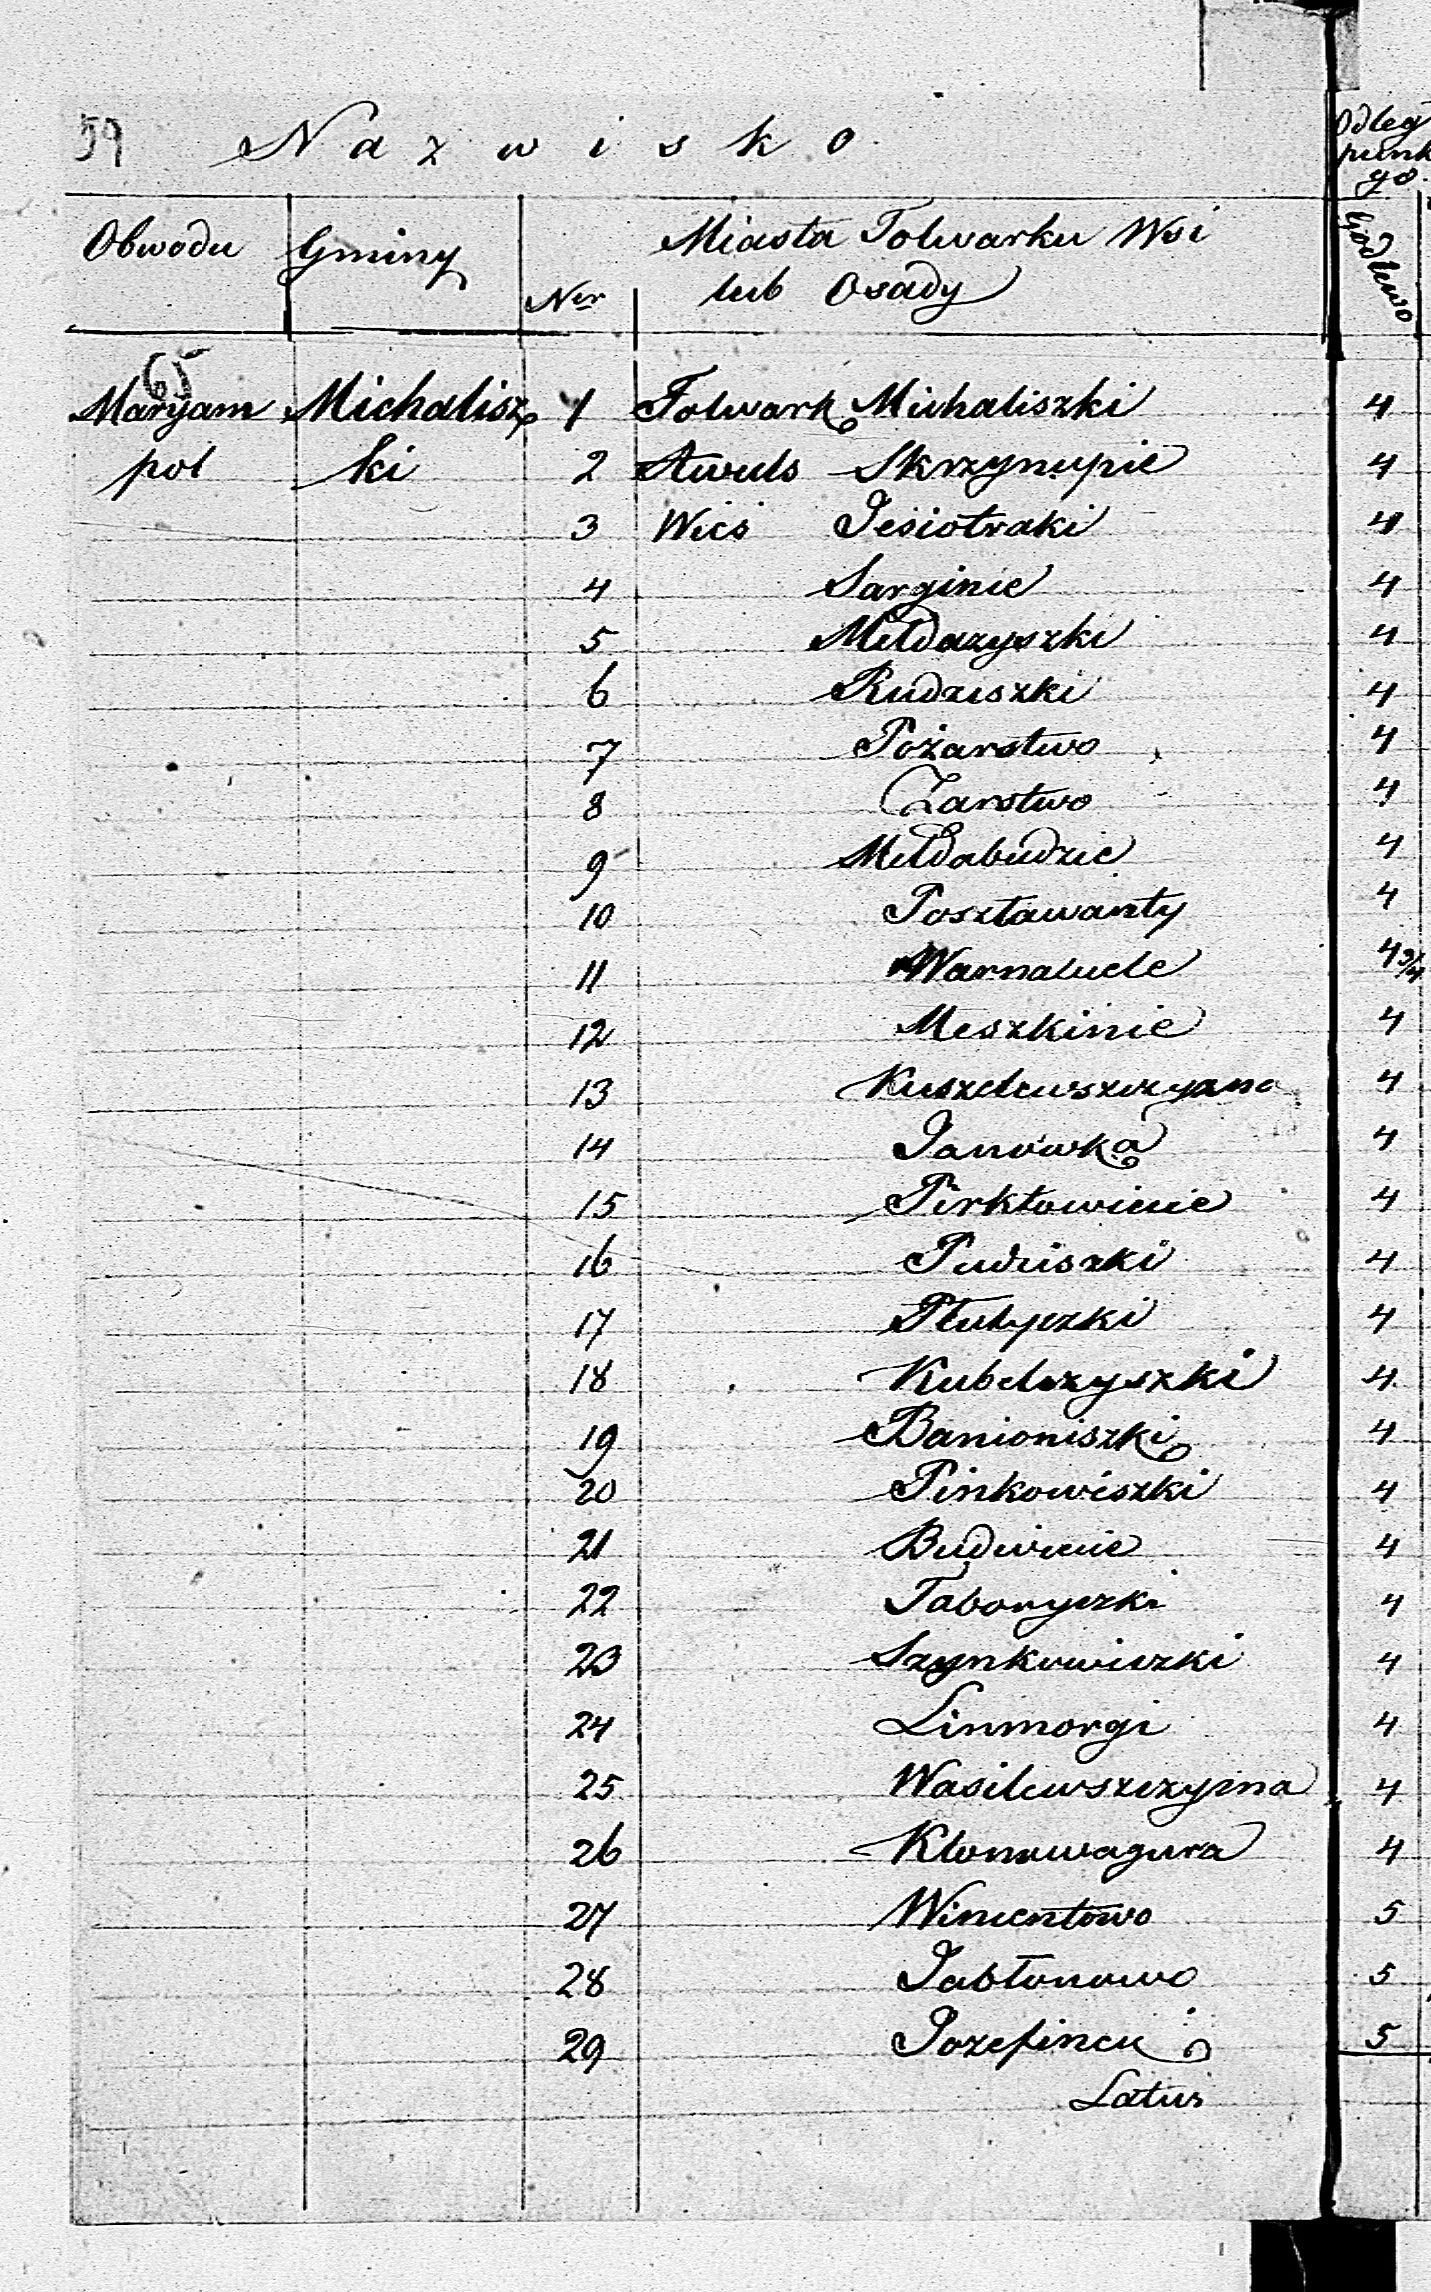 59 Nazwisko Odleg
punk
go.
Obwodu Gminy Ner Miasta Folwarku Wsi
lub Osady Godlewo
65
Maryam Michalisz 1 Folwark Michaliszki 4
pol ki 2 Awuls Skrzynupie 4
3 Wieś Jesiotraki 4
4 Sarginie 4
5 Mełdazyszki 4
6 Rudziszki 4
7 Pożarstwo 4
8 Żarstwo 4
9 Mełdabudzie 4
10 Posztawanty 4
11 Warnalucle 4 3/4
12 Meszkinie 4
13 Kuszelewszczyzna 4
14 Janówka 4
15 Pirktowiecie 4
16 4
17 Płutyszki 4
18 Kubelszyszki 4
19 Banioniszki 4
20 Pinkowiszki 4
21 Budwiecie 4
22 Taboryszki 4
23 Szynkowiszki 4
24 Linmorgi 4
25 Wasilewszczyzna 4
26 Klonowagura 4
27 Wincentowo 5
28 Jabłonowo 5
29 Jozefincu 5
Latus